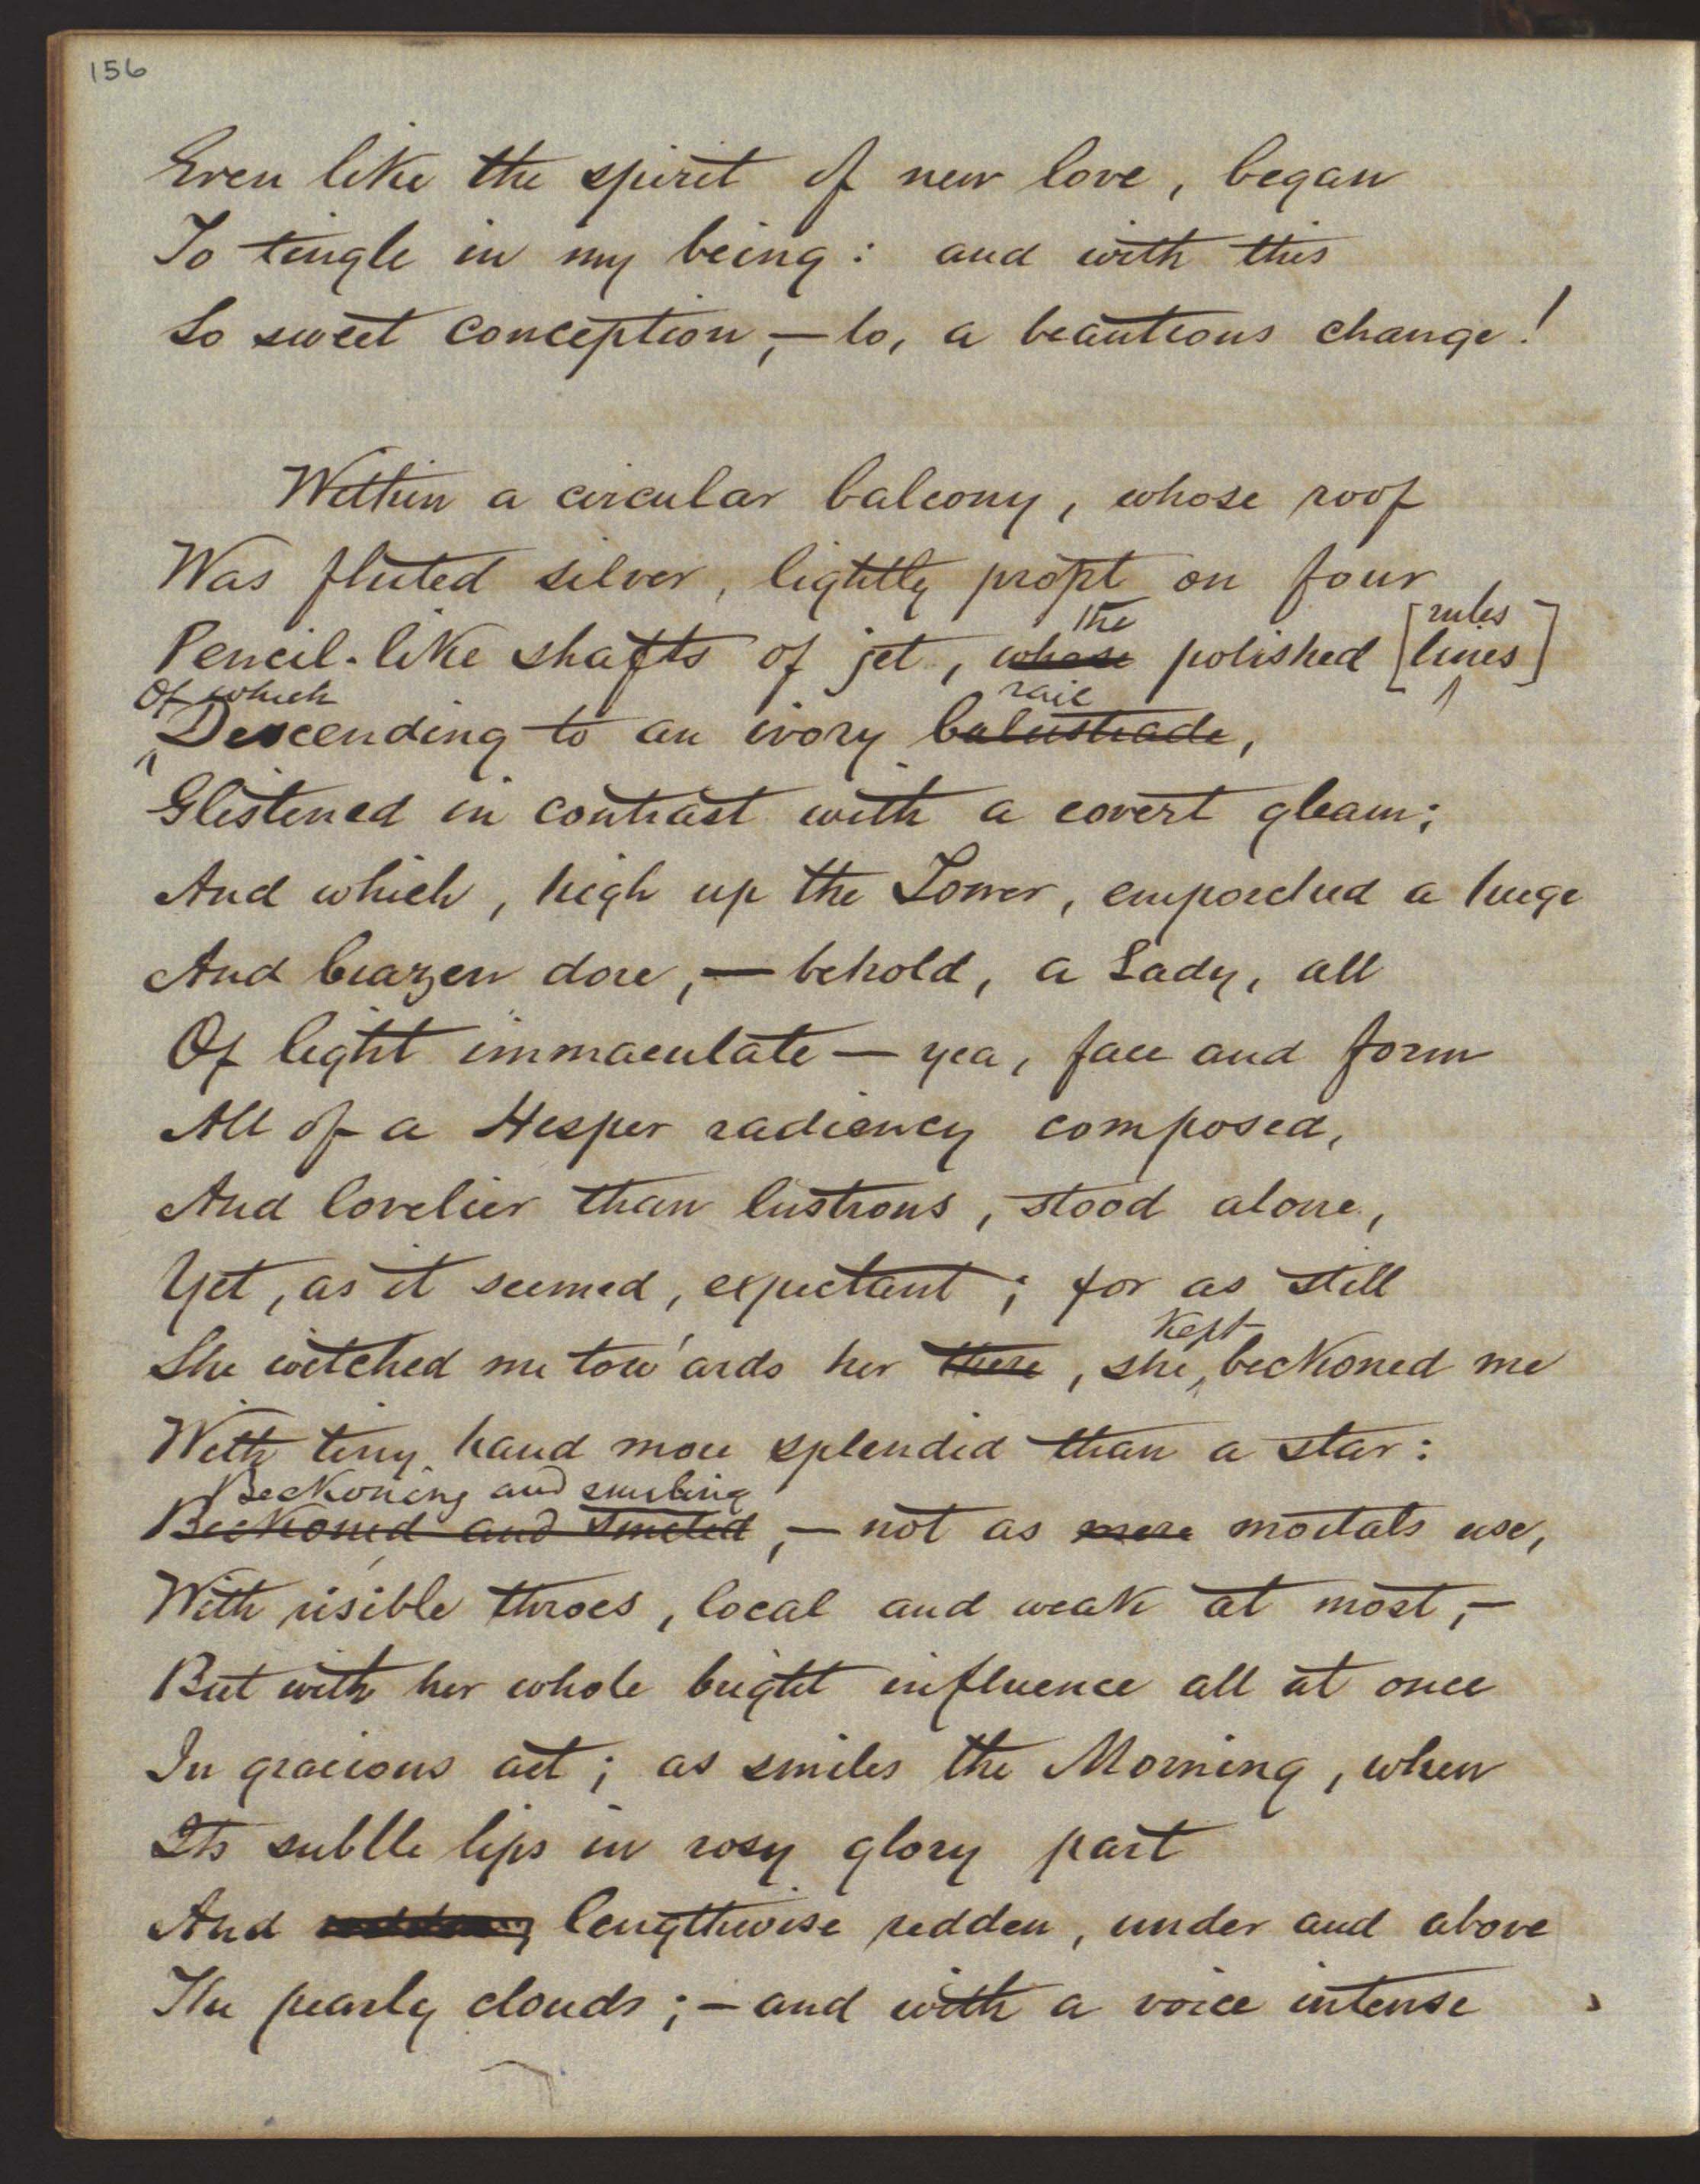 156
Even like the spirit of new love, began
To tingle in my being: and with this
So sweet conception, — lo, a beauteous change!
Within a circular balcony, whose roof
Was fluted silver, lightly propt on four
the rules
Pencil-like shafts of jet, whose polished [lines]
Of which rail
Descending to an ivory balustrade,
Glistened in contrast with a covert gleam;
And which, high up the Tower, emporched a huge
And brazen dore, — behold, a Lady, all
Of light immaculate — yea, face and form
All of a Hesper radiency composed,
And lovelier than lustrous, stood alone,
Yet, as it seemed, expectant; for as still
kept
She witched me tow'ards her there, she beckoned me
With tiny hand more splendid than a star:
Beckoning and smiling
Beckoned and smiled, — not as mere mortals use,
With risible throes, local and weak at most, —
But with her whole bright influence all at once
In gracious act; as smiles the Morning, when
Its subtle lips in rosy glory part
And lengthwise redden, under and above
The pearly clouds; — and with a voice intense